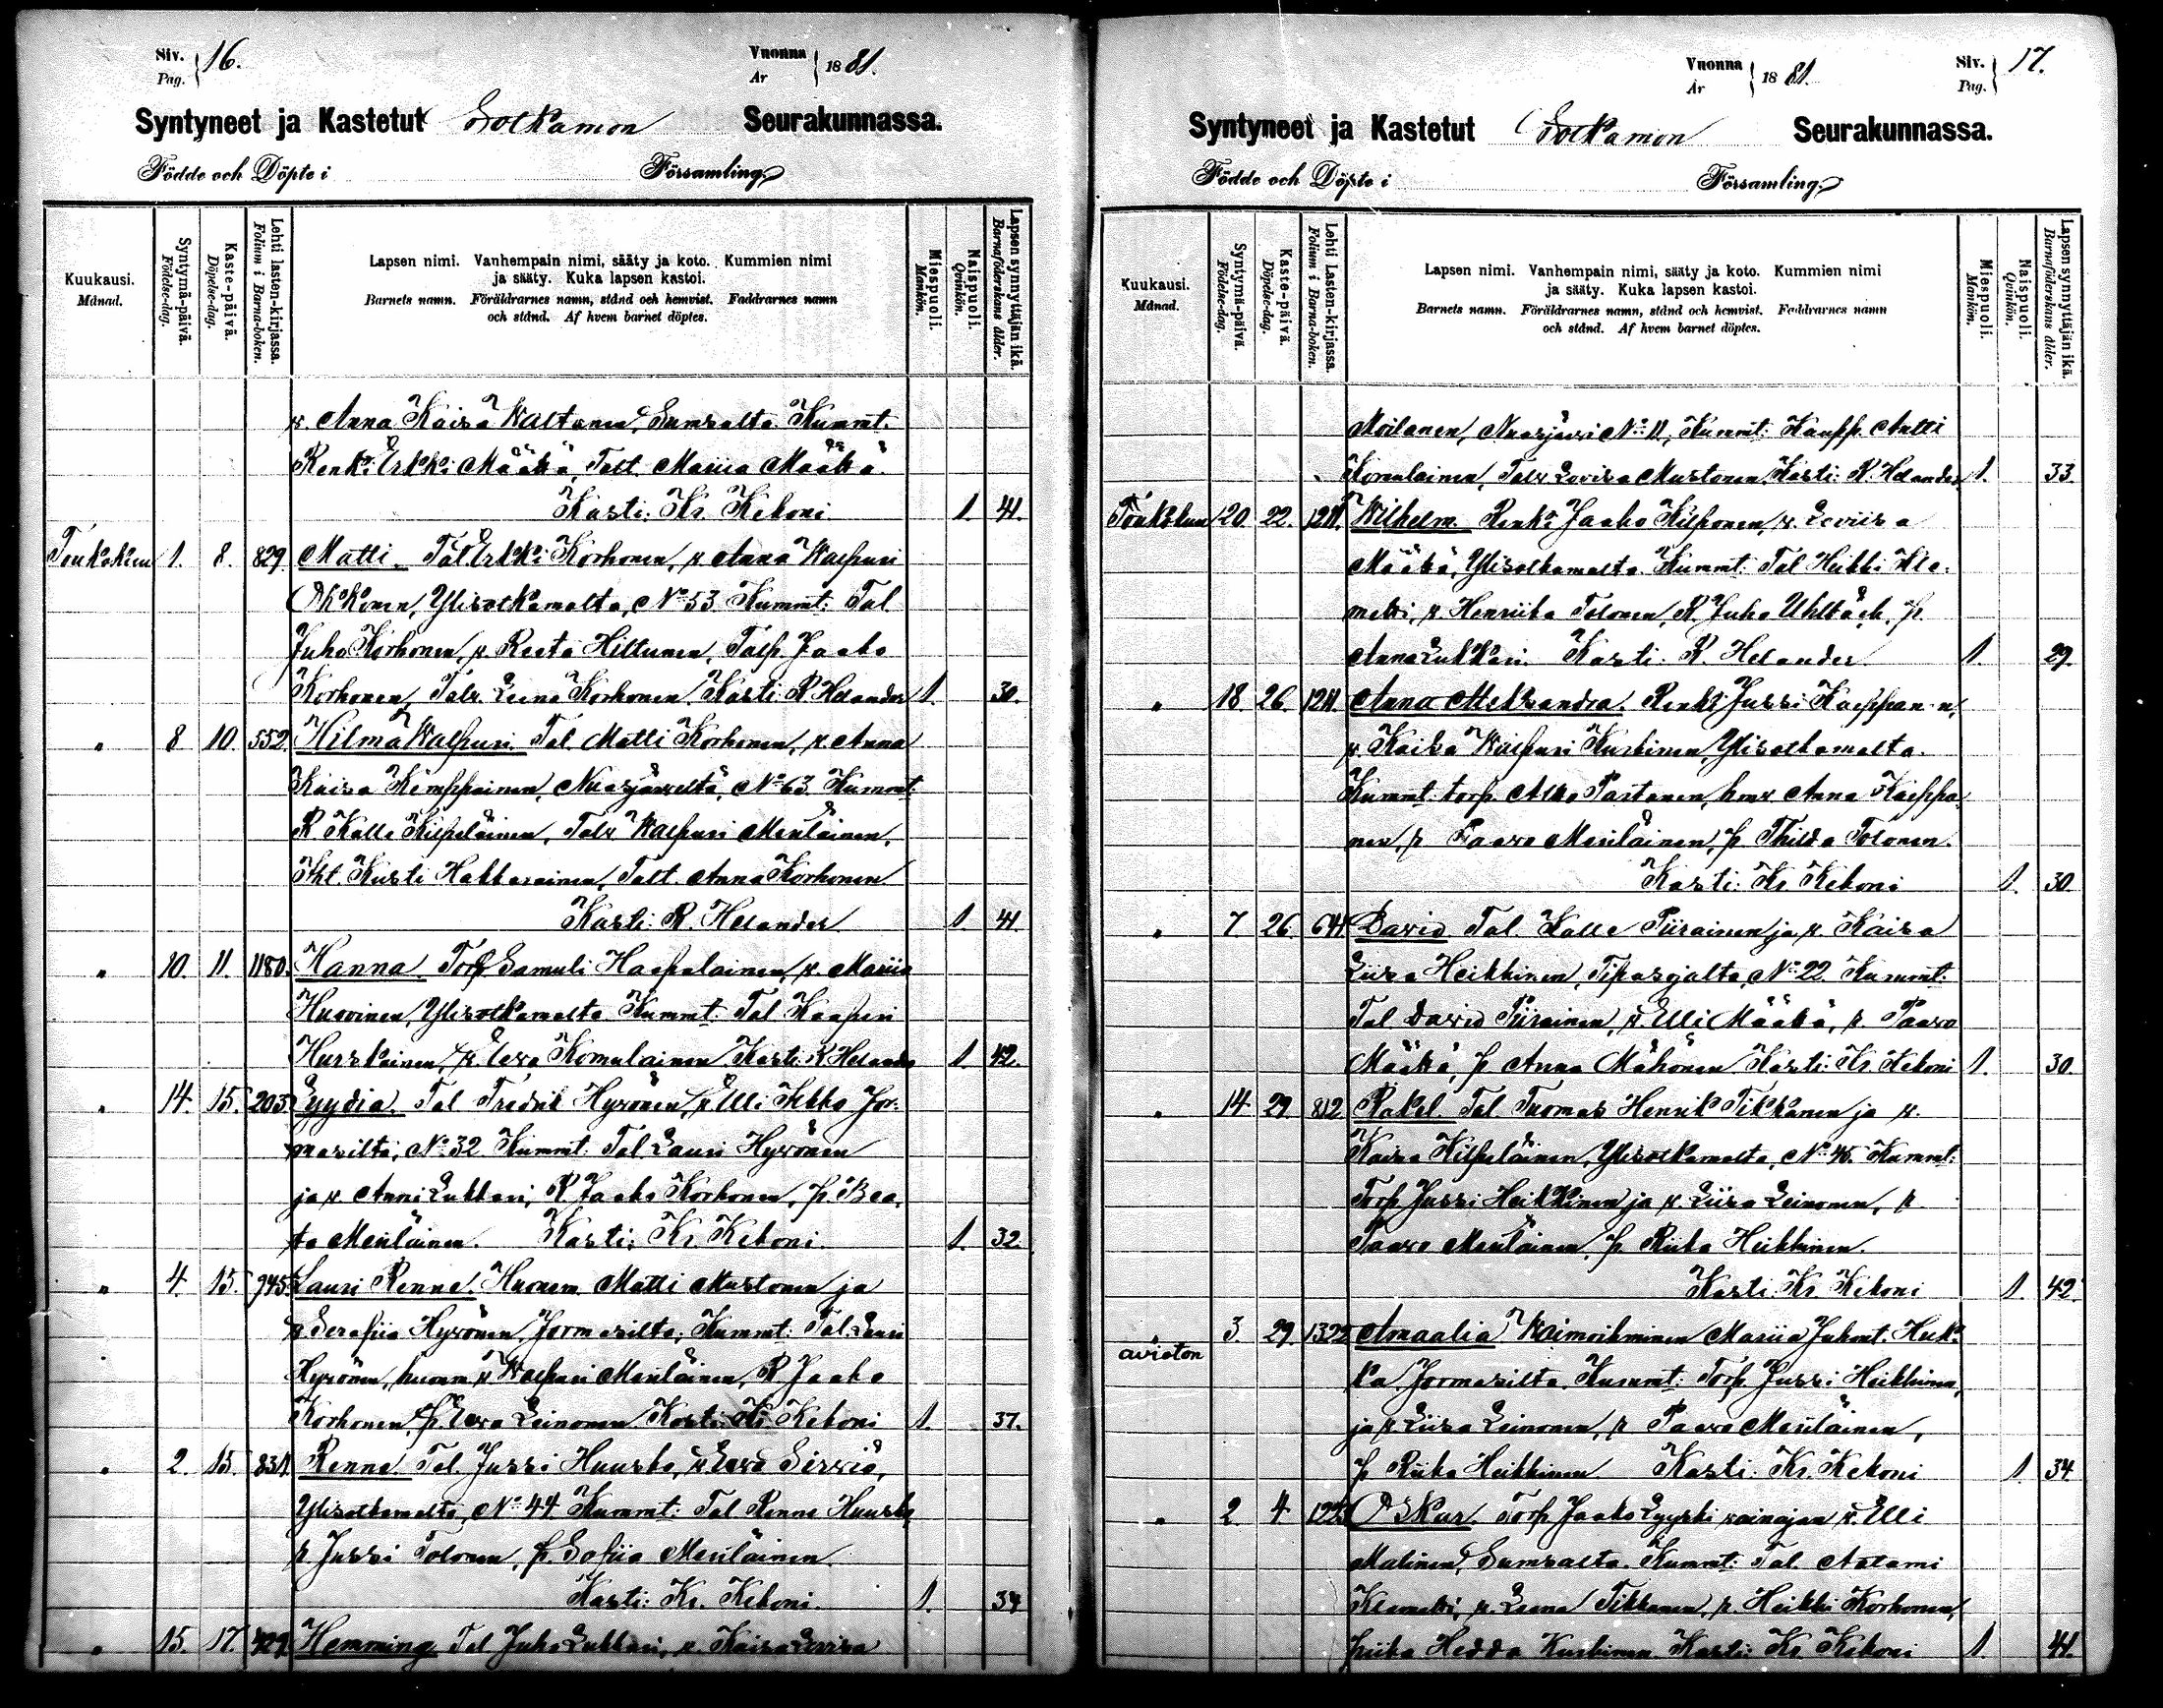 Siv. Pag. 16. Vuonna År 1881.
Syntyneet ja Kastetut Sotkamon Seurakunnassa.
Födde och Döpte i Församling.
Kuukausi. Månad.
Syntymä-päivä. Födelse-dag.
Kaste-päivä. Döpelse-dag.
Lehti lasten-kirjassa. Folium i Barna-boken.
Lapsen nimi. Vanhempain nimi, sääty ja koto. Kummien nimi
ja sääty. Kuka lapsen kastoi.
Barnets namn. Föräldrarnes namn, stånd och hemvist. Faddrarnes namn
och stånd. Af hvem barnet döptes.
Miespuoli. Mankön.
Naispuoli. Qvinkön.
Lapsen synnyttäjän ikä. Barnaföderskans ålder.
w. Anna Kaisa Waltanen, Sumsalta. Kummt.
Renki Erkki Määttä, Talt. Maria Määttä.
Kasti: Kr. Keboni. 1. 41.
Toukokuu 1. 8. 829. Matti. Tal. Erkki Korhonen, w. Anna Walpuri
Okkonen, Ylisotkamolta, No 53. Kummt: Tal
Juho Korhonen, w. Reeta Hiltunen, Talp. Jaako
Korhonen, Talt. Leena Korhonen. Kasti: R. Helander 1. 30.
" 8 10 552 Hilma Walpuri. Tal. Matti Korhonen, w. Anna
Kaisa Kemppainen, Nuasjärveltä, No 63. Kummt
R. Kalle Kilpeläinen, Talt. Walpuri Meriläinen,
Itl. Kusti Hakkarainen, Talt. Anna Korhonen.
Kasti: R. Helander 1. 41
" 10. 11. 1180. Hanna. Torp Samuli Haapalainen, w. Mariia
Huovinen, Ylisotkamolta. Kummt: Tal. Kaapri
Hurskainen, w. Eewa Komulainen. Kasti: R Helander 1. 42.
" 14. 15. 203 Lyydia. Tal Fredrik Hyvönen, w. Elli Ikkko Jor-
masilta, No 32. Kummt: Tal. Lauri Hyvönen
ja w. Anni Lukkari, R. Jaako Korhonen, p. Bea-
ta Meriläinen. Kasti: Kr. Keboni. 1. 32.
" 4. 15. 945. Lauri Renne. Huonem. Matti Mustonen ja
w Serafiia Hyvönen, Jormasilta, Kummt: Tal. Lauri
Hyvönen, huonm w. Walpuri Meriläinen, R Jaako
Korhonen, p. Eewa Leinonen. Kasti: Kr Keboni 1. 37.
" 2. 15. 831. Renne. Tal. Jussi Huusko, w. Eewa Sirwiö,
Ylisotkamolta, No 44. Kummt: Tal Renne Huusko,
r. Jussi Tolonen, p. Sofiia Meriläinen.
Kasti: Kr. Keboni. 1. 34
" 15. 17. 429 Hemming Tal Juho Lukkari, w. Kaisa Lovisa
Vuonna År 1881. Siv. Pag. 17.
Syntyneet ja Kastetut Sotkamon Seurakunnassa.
Födde och Döpte i Församling.
Kuukausi. Månad.
Syntymä-päivä. Födelse-dag.
Kaste-päivä. Döpelse-dag.
Lehti Lasten-kirjassa. Folium i Barna-boken.
Lapsen nimi. Vanhempain nimi, sääty ja koto. Kummien nimi
ja sääty. Kuka lapsen kastoi.
Barnets namn. Föräldrarnes namn, stånd och hemvist. Faddrarnes namn
och stånd. Af hvem barnet döptes.
Miespuoli. Mankön.
Naispuoli. Qvinkön.
Lapsen synnyttäjän ikä. Barnaföderskans ålder.
Moilanen, Nuasjärvi No 11, Kummt: Kaupp. Antti
Komulainen, Talt Lovisa Mustonen. Kasti: R. Helander. 1. 33.
Toukokuu 20. 22. 1211. Wilhelm. Renki Jaako Kilponen, w. Loviisa
Määttä, Ylisotkamolta. Kummt. Tal Heikki Kle-
metti, w. Henriika Tolonen, R. Juho Uhlbäck, p.
Anna Lukkari. Kasti: R. Helander. 1. 29.
" 18 26. 1211. Anna Aleksandra. Renki Jussi Kaappanen,
w. Kaisa Walpuri Kurkinen, Ylisotkamolta.
Kummt: torp. Asko Partanen, hmw Anna Kaappa-
nen, r. Paavo Meriläinen, p Thilda Tolonen.
Kasti: Kr Keboni 1. 30.
" 7. 26. 641 David Tal. Kalle Piirainen ja w. Kaisa
Liisa Heikkinen, Tipasojalta, No 22. Kummt:
Tal David Piirainen, w. Elli Määttä, r. Paavo
Määttä, p Anna Mähönen. Kasti: Kr Keboni 1. 30.
" 14 29. 812 Rakel. Tal Tuomas Henrik Tikkanen ja w.
Kaisa Kilpeläinen, Ylisotkamolta, No 45. Kummt:
Torp. Jussi Heikkinen ja w. Liisa Leinonen, r
Paavo Meriläinen, p. Riika Heikkinen.
Kasti: Kr Keboni 1 42.
" avioton 3. 29. 1322 Amaalia Waimoihminen Mariia Juhont. Huk-
ka. Jormasilta. Kummt: Torp. Jussi Heikkinen,
ja w. Liisa Leinonen, r Paavo Meriläinen,
p Riika Heikkinen. Kasti: Kr. Keboni 1. 34.
" 2. 4. Oskar. Torp Jaako Lyyski vainajan w. Elli
Malinen, Sumsalta. Kummt: Tal. Aatami
Klemetti, w. Leena Tikkanen, r. Heikki Korhonen,
piika Hedda Kurkinen. Kasti: Kr Keboni 1. 41.